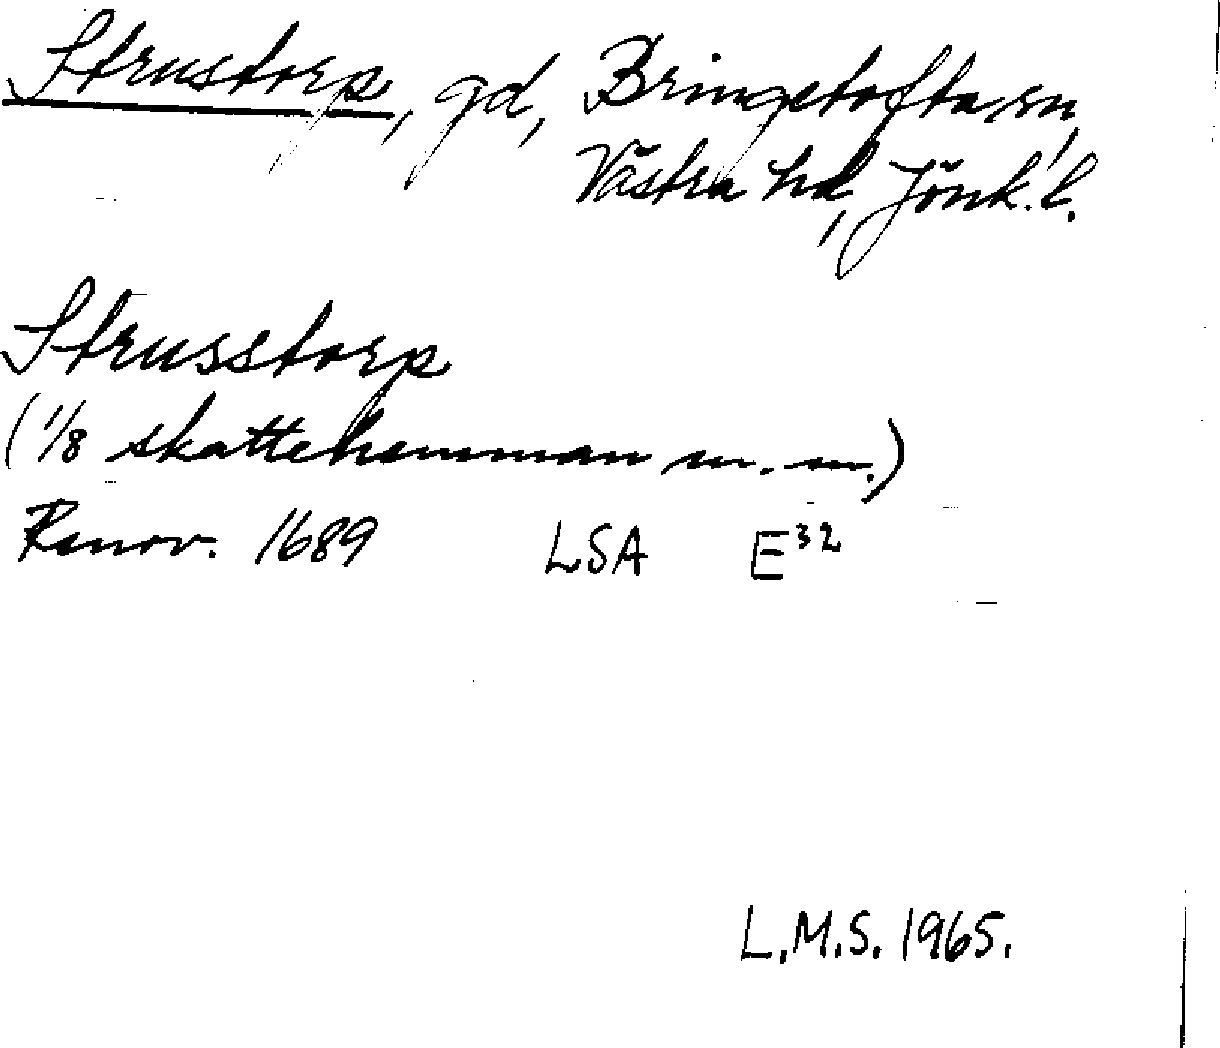 Strustorp, gd, Bringetofta sn,
Västra hd, Jönk. l.
Strusstorp
(1/8 skattehemman m. m.)
Renov. 1689 LSA E32
L.M.S. 1965.